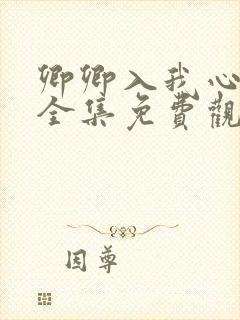 卿卿入我心
全集免費觀
因尊